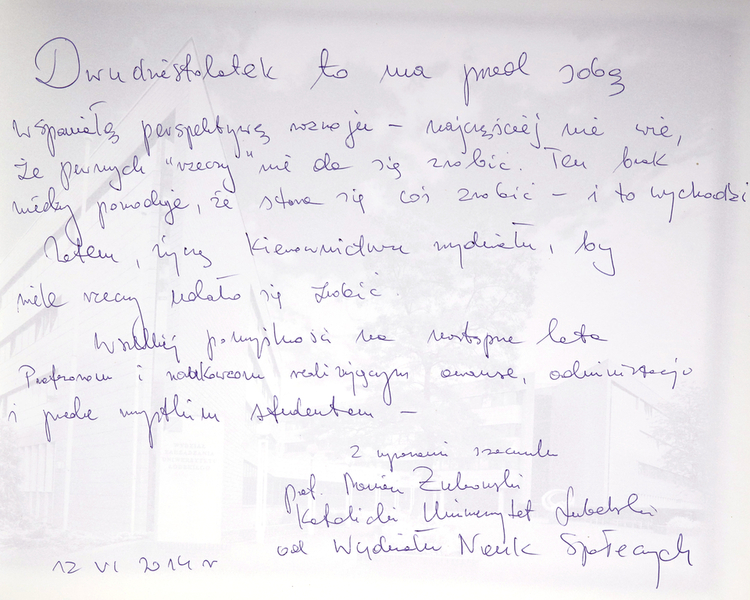 Dwudziestolatek to ma przed sobą
wspaniałą perspektywę rozwoju – najczęściej nie wie,
że pewnych "rzeczy" nie da się zrobić. Ten brak
wiedzy powoduje, że stara się coś zrobić – i to wychodzi
Zatem, życzę Kierownictwu wydziału, by
wiele rzeczy udało się zrobić.
Wszelkiej pomyślności na następne lata
Profesorom i naukowcom realizującym awanse, administracji
i przede wszystkim studentom –
Z wyrazami szacunku
prof.
Katolicki Uniwersytet Lubelski
od Wydziału Nauk Społecznych
12 VI 2014 r